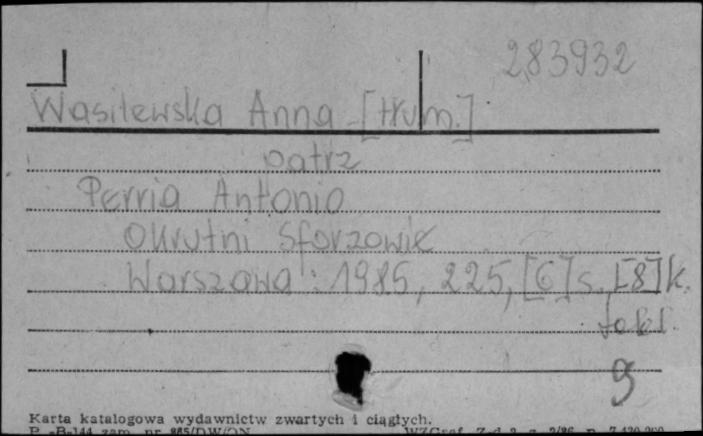 283932
Wasilewska Anna [tłum.]
patrz
Perria Antonio
Okrutni Sforzowie
Warszawa : 1985, 225, [6] s., [8] k.
tabl.
9
Karta katalogowa wydawnictw zwartych i ciągłych.
P.-B-144 zam. nr 865/DW/ON